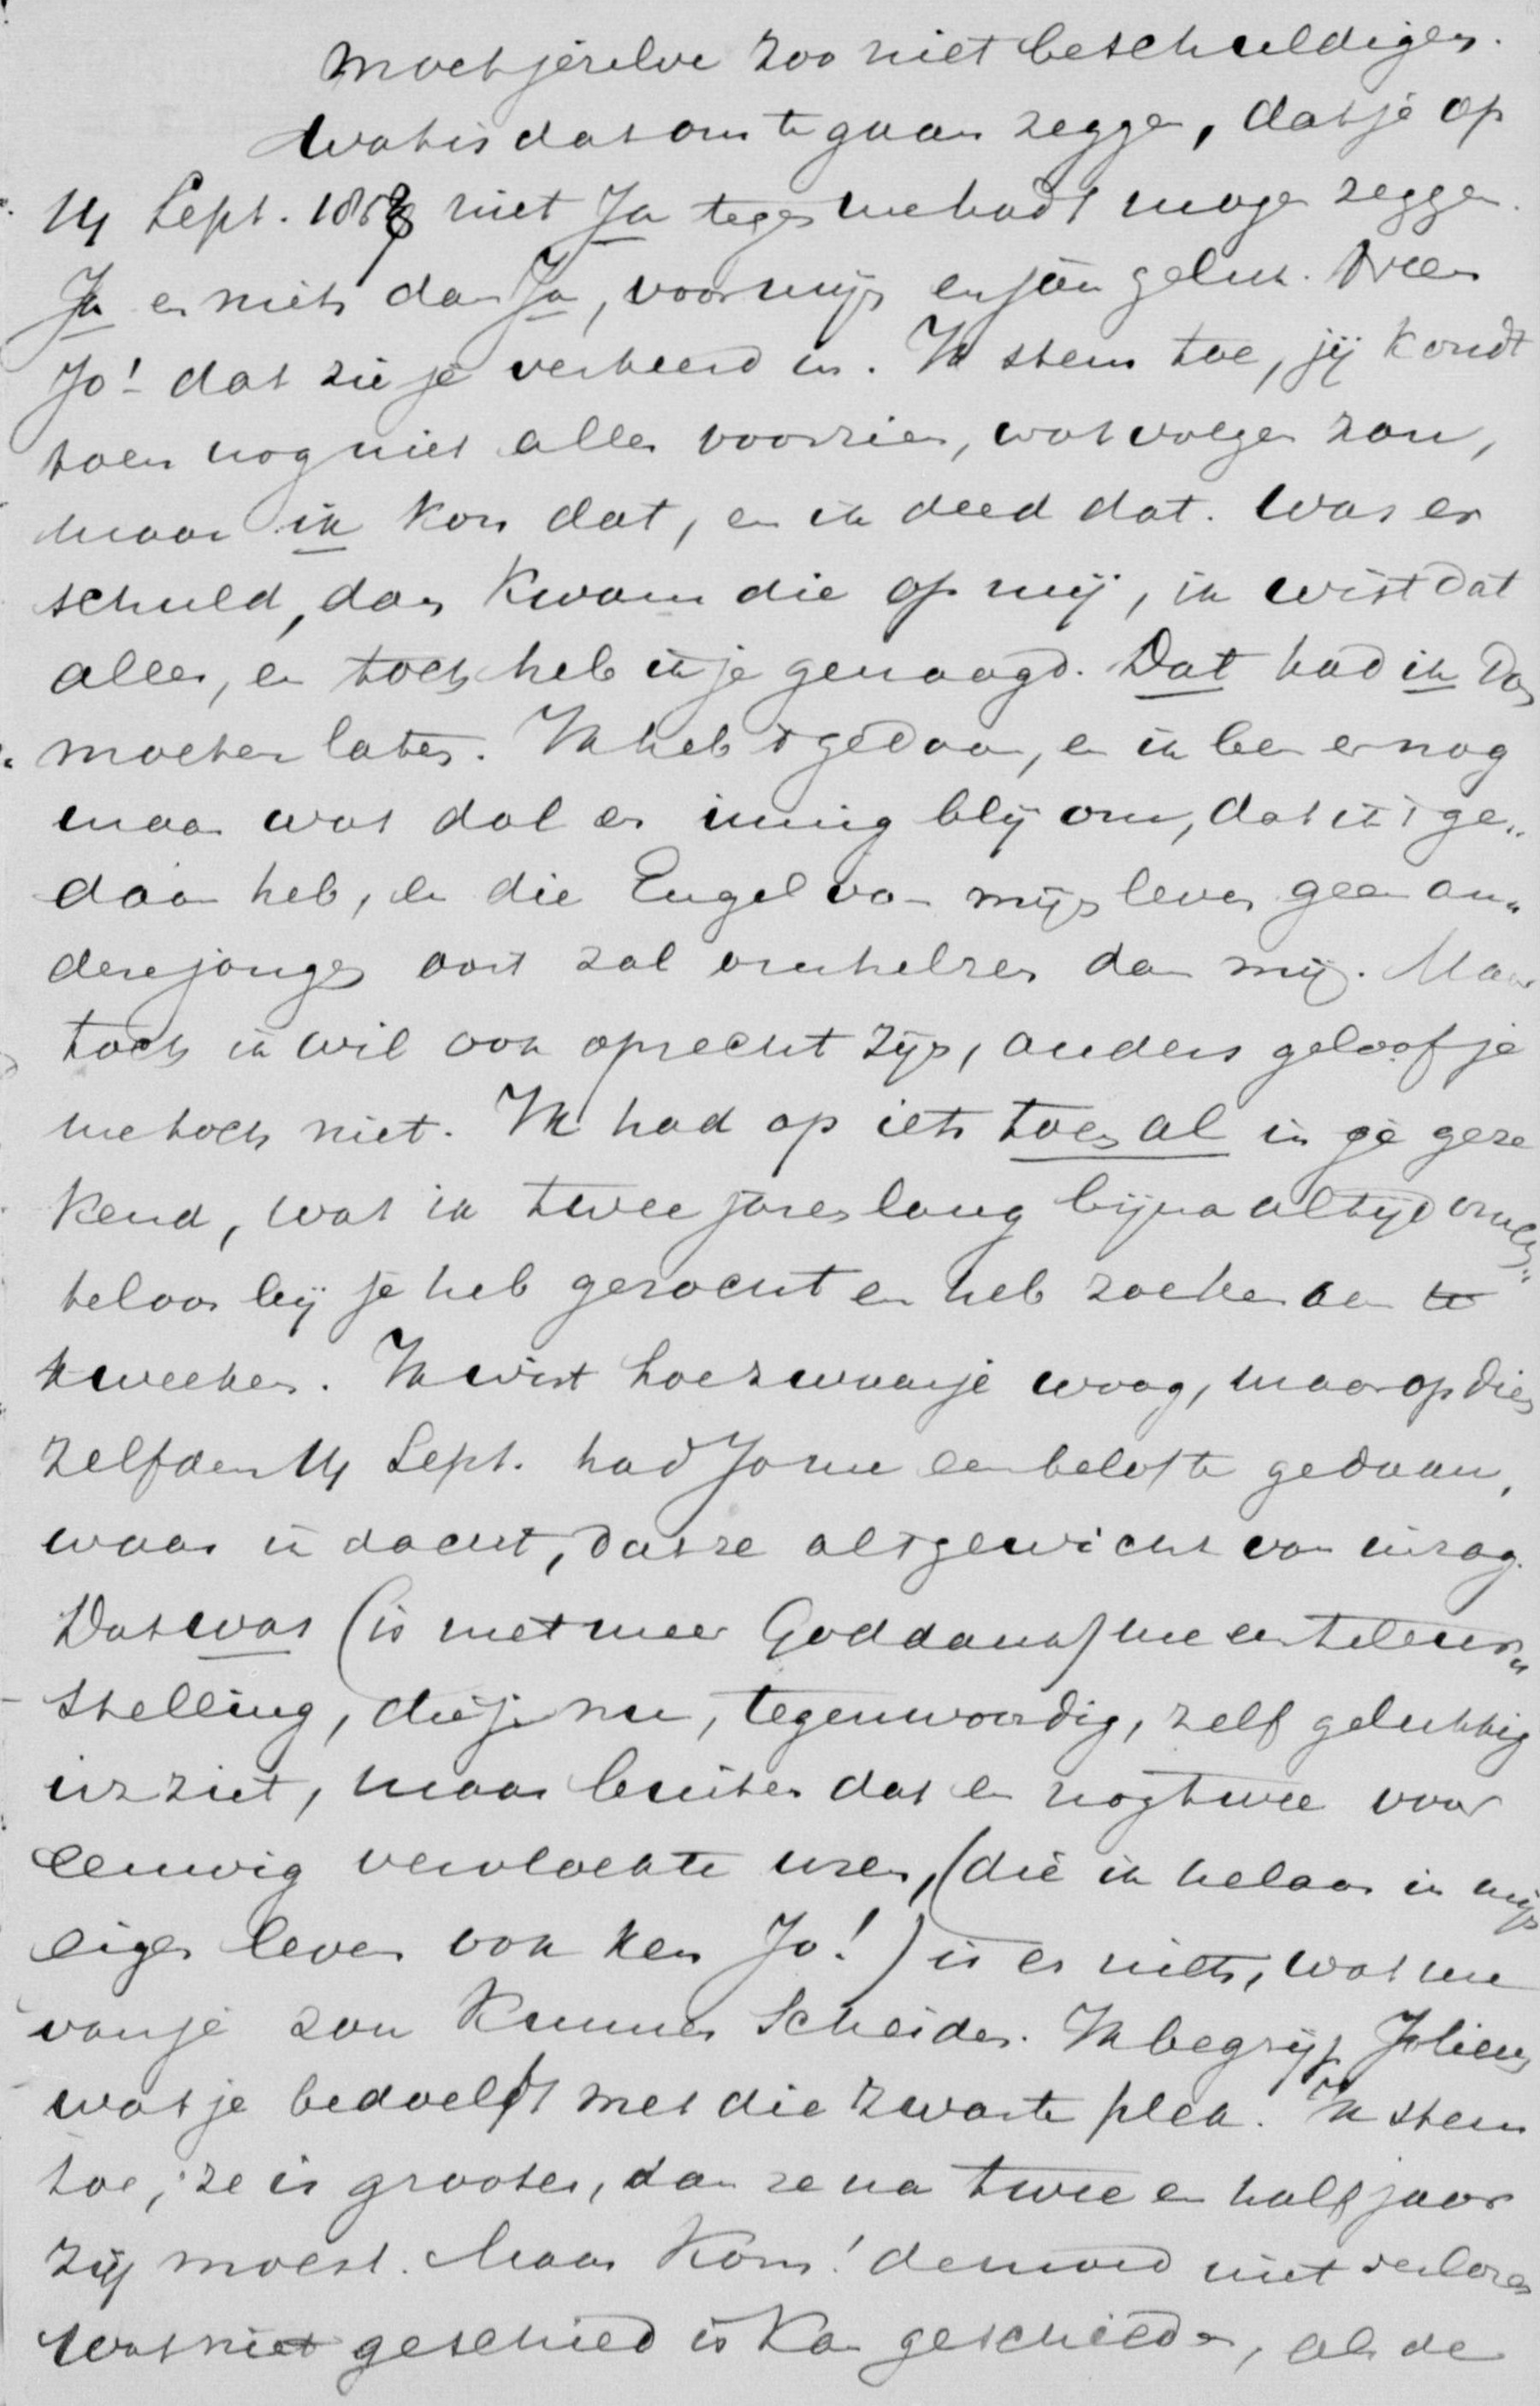 moet jezelve zoo niet beschuldigen.
Wat is dat om te gaan zeggen, dat je op
14 Sept. 1858 niet Ja tegen me hadt mogen zeggen.
Ja en niets dan Ja, voor mijn en jou geluk. Neen
Jo! dat zie je verkeerd in. Ik stem toe, jij kondt
toen nog niet alles voorzien, wat volgen zou,
maar ik kon dat, en ik deed dat. Was er
schuld, dan kwam die op mij, ik wist dat
alles, en toch heb ik je gevraagd. Dat had ik dan
moeten laten. Ik heb 't gedaan, en ik ben er nog
maar wat dol en innig blij om, dat ik 't ge„
daan heb, en die Engel van mijn leven geen an„
deren jongen ooit zal omhelzen dan mij. Maar
toch ik wil ook oprecht zijn, anders geloof je
me toch niet. Ik had op iets toen al in je gere
kend, wat ik twee jaren lang bijna altijd vruch„
teloos bij je heb gezocht en heb zoeken aan te
kweeken. Ik wist hoe zwaar je woog, maar op dien
zelfden 14 Sept. had Jo me een belofte gedaan,
waar ik dacht, dat ze al 't gewicht van inzag.
Dat was (is niet meer Goddank) me een teleur„
stelling, die je nu, tegenwoordig, zelf gelukkig
inziet, maar buiten dat en nog twee voor
eeuwig vervloekte uren, (die ik helaas in mijn
eigen leven ook ken Jo!) is er niets, wat me
van je zou kunnen scheiden. Ik begrijp Jolien
wat je bedoeldt met die zwarte plek. Ik stem
toe, ze is grooter, dan ze na twee en half jaar
zijn moest. Maar kom! den moed niet verloren
wat niet geschied is kan geschieden, als de